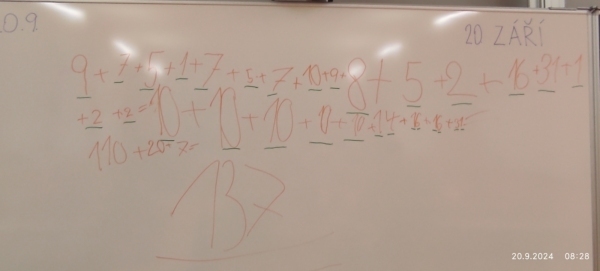 0.9
20 ZÁŘÍ
9+7+5+1+7+5+7+10+9+8+5+2+16+31+1
+2+2=10+10+10+10+10+14+16+16+
110+20+7=
137
20.9.2024 08:28